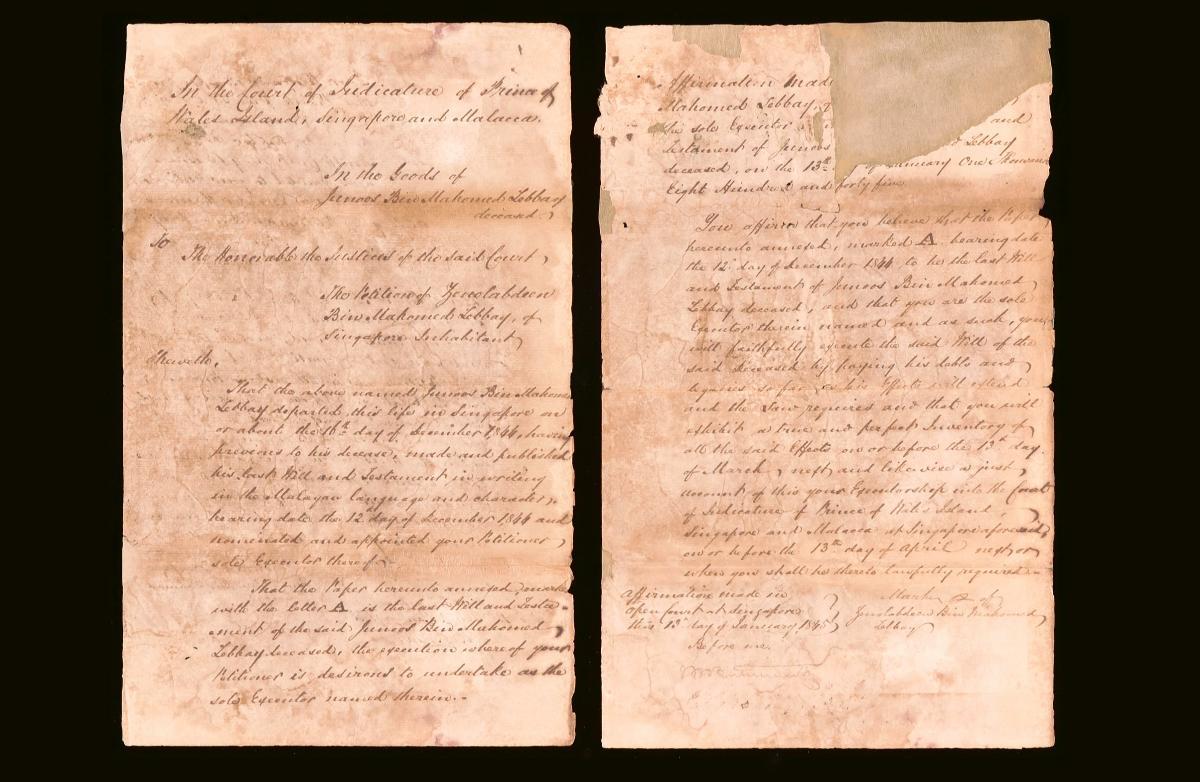 In the Court of Judicature of Prince of
Wales Island, Singapore and Malacca.
In the Goods of
Junoos Bin Mahomed Lebbay
deceased
To
The Honorable the Justices of the said Court,
The Petition of Zenolabdeen
Bin Mahomed Lebbay, of
Singapore Inhabitant,
Sheweth,
That the above named Junoos Bin Mahomed
Lebbay departed this life in Singapore on
or about the 16th day of December 1844, having
previous to his decease, made and published
his last Will and Testament in writing
in the Malayan language and character,
bearing date the 12th day of December 1844 and
nominated and appointed your Petitioner
sole Executor thereof
That the Paper hereunto annexed, marked
with the letter A is the last Will and Testa-
ment of the said Junoos Bin Mahomed
Lebbay deceased, the execution whereof your
Petitioner is desirous to undertake as the
sole Executor named therein.
Affirmation made
Mahomed Lebbay,
the sole Executor and
testament of Junoos Lebbay
deceased, on the 13th January One Thousand
Eight Hundred and forty five
You affirm that you believe that the Paper
hereunto annexed, marked A bearing date
the 12 day of December 1844 to be the last Will
and Testament of Junoos Bin Mahomed
Lebbay deceased, and that you are the sole
Executor therein named and as such, you
will faithfully execute the said Will of the
said deceased by paying his debts and
legacies so far as his Effects will extend
and the Law requires and that you will
exhibit a true and perfect Inventory of
all the said Effects on or before the 13th day
of March next and likewise a just
account of this your Executorship into the Court
of Judicature of Prince of Island,
Singapore and Malacca at Singapore aforesaid,
on or before the 13th day of April next, or
when you shall be thereto lawfully required
Affirmation made in
Open Court at Singapore
this 13 day of January 1845
Mark of
Zenolabdeen Bin Mahomed
Lebbay
Before me.